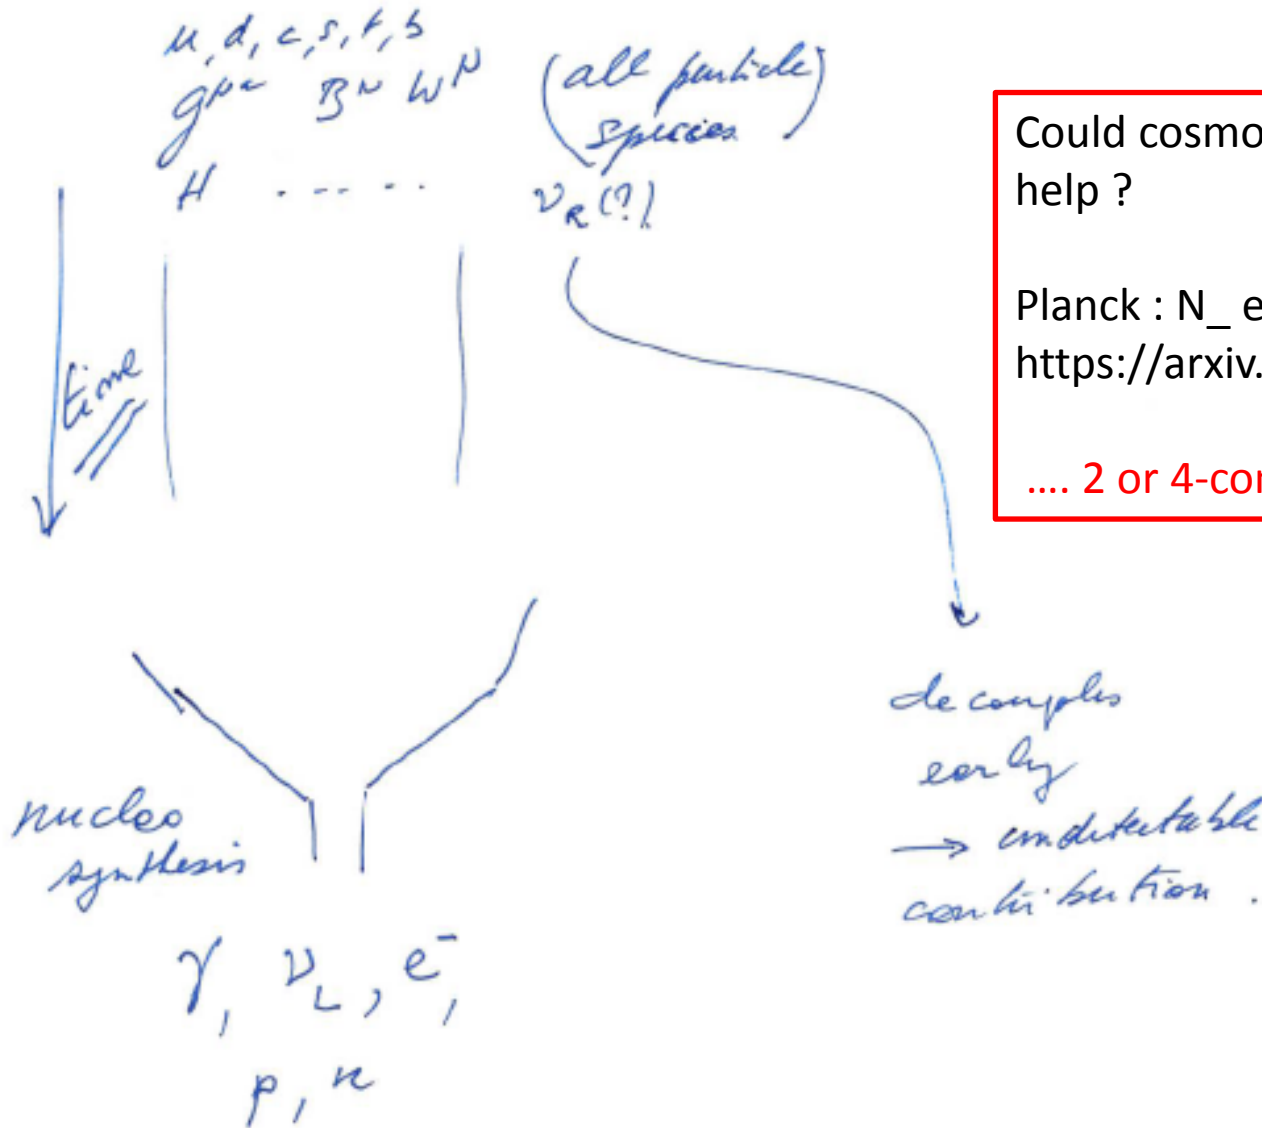 u, d, c, s, t, b
g^μa B^μ W^μ (all particle
species)
H - - - - · ν_R (?)
time
nucleo
synthesis
γ, ν_L, e^-,
p, n
decouples
early
→ undetectable
contribution .
Could cosmo
help ?
Planck : N_ e
https://arxiv.
.... 2 or 4-cor